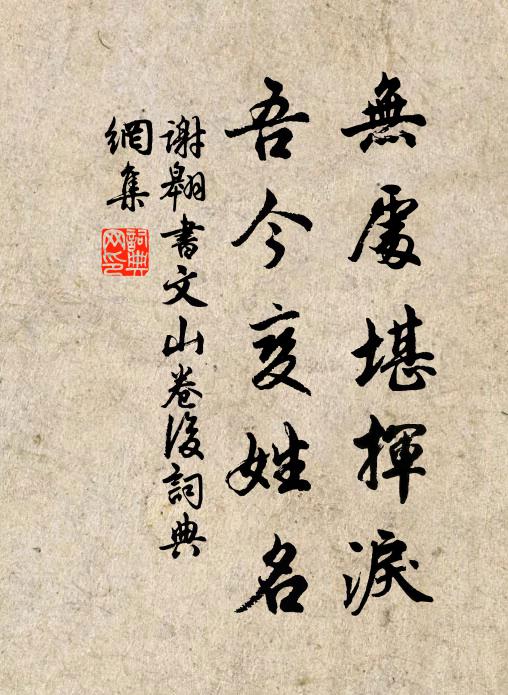 無處堪揮淚
吾今变姓名
謝翱書文山卷後詞典
網集
詞典
网印